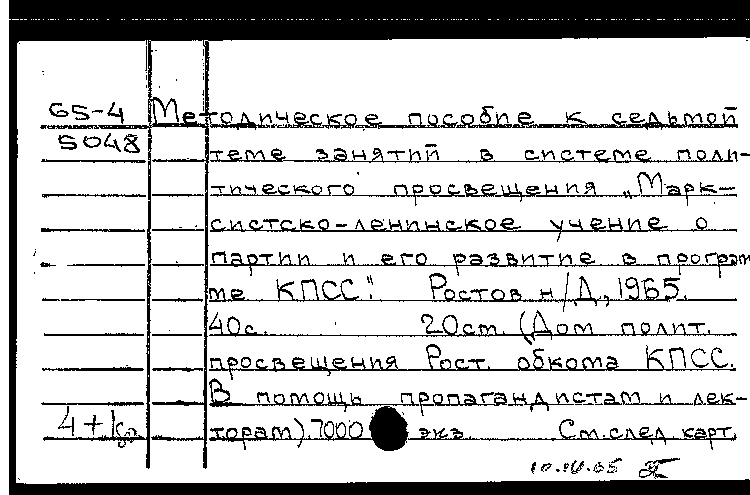 65-4 Методическое пособие к седьмой
5048 теме занятий в системе поли-
тического просвещения „Марк-
систско-ленинское учение о
партии и его развитие в програм
ме КПСС". Ростов н/Д, 1965.
40с. 20см. (Дом полит.
просвещения Рост. обкома КПСС.
В помощь пропагандистам и лек-
4+ торам). 7000 экз. См.след карт.